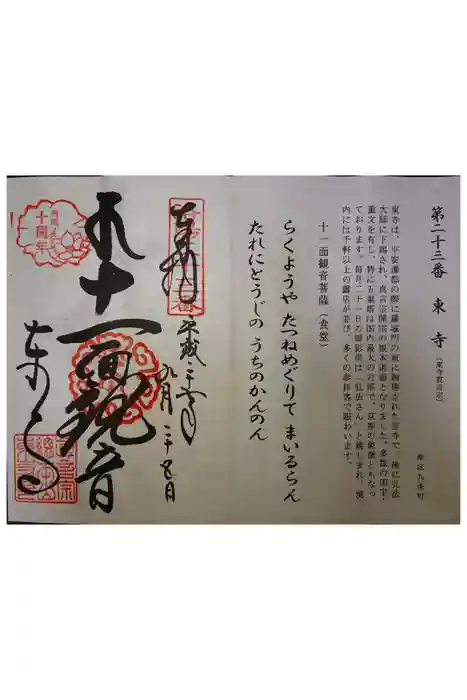 第二十三番 東寺（東寺真言宗）
南区九条町
東寺は、平安遷都の際に羅城門の東に創建された官寺で、後に弘法
大師に下賜され、真言宗開宗の根本道場となりました。多数の国宝・
重文を有し、特に五重塔は国内最大の古塔で、京都の象徴ともなっ
ております。毎月二十一日の御影供は「弘法さん」と親しまれ、境
内には千軒以上の露店が並び、多くの参拝客で賑わいます。
十一面観音菩薩（食堂）
らくようや たつねめぐりて まいるらん
たれにとうじの うちのかんのん
奉拝
平成二十七年
九月二十五日
十一面観音
東寺
十周年